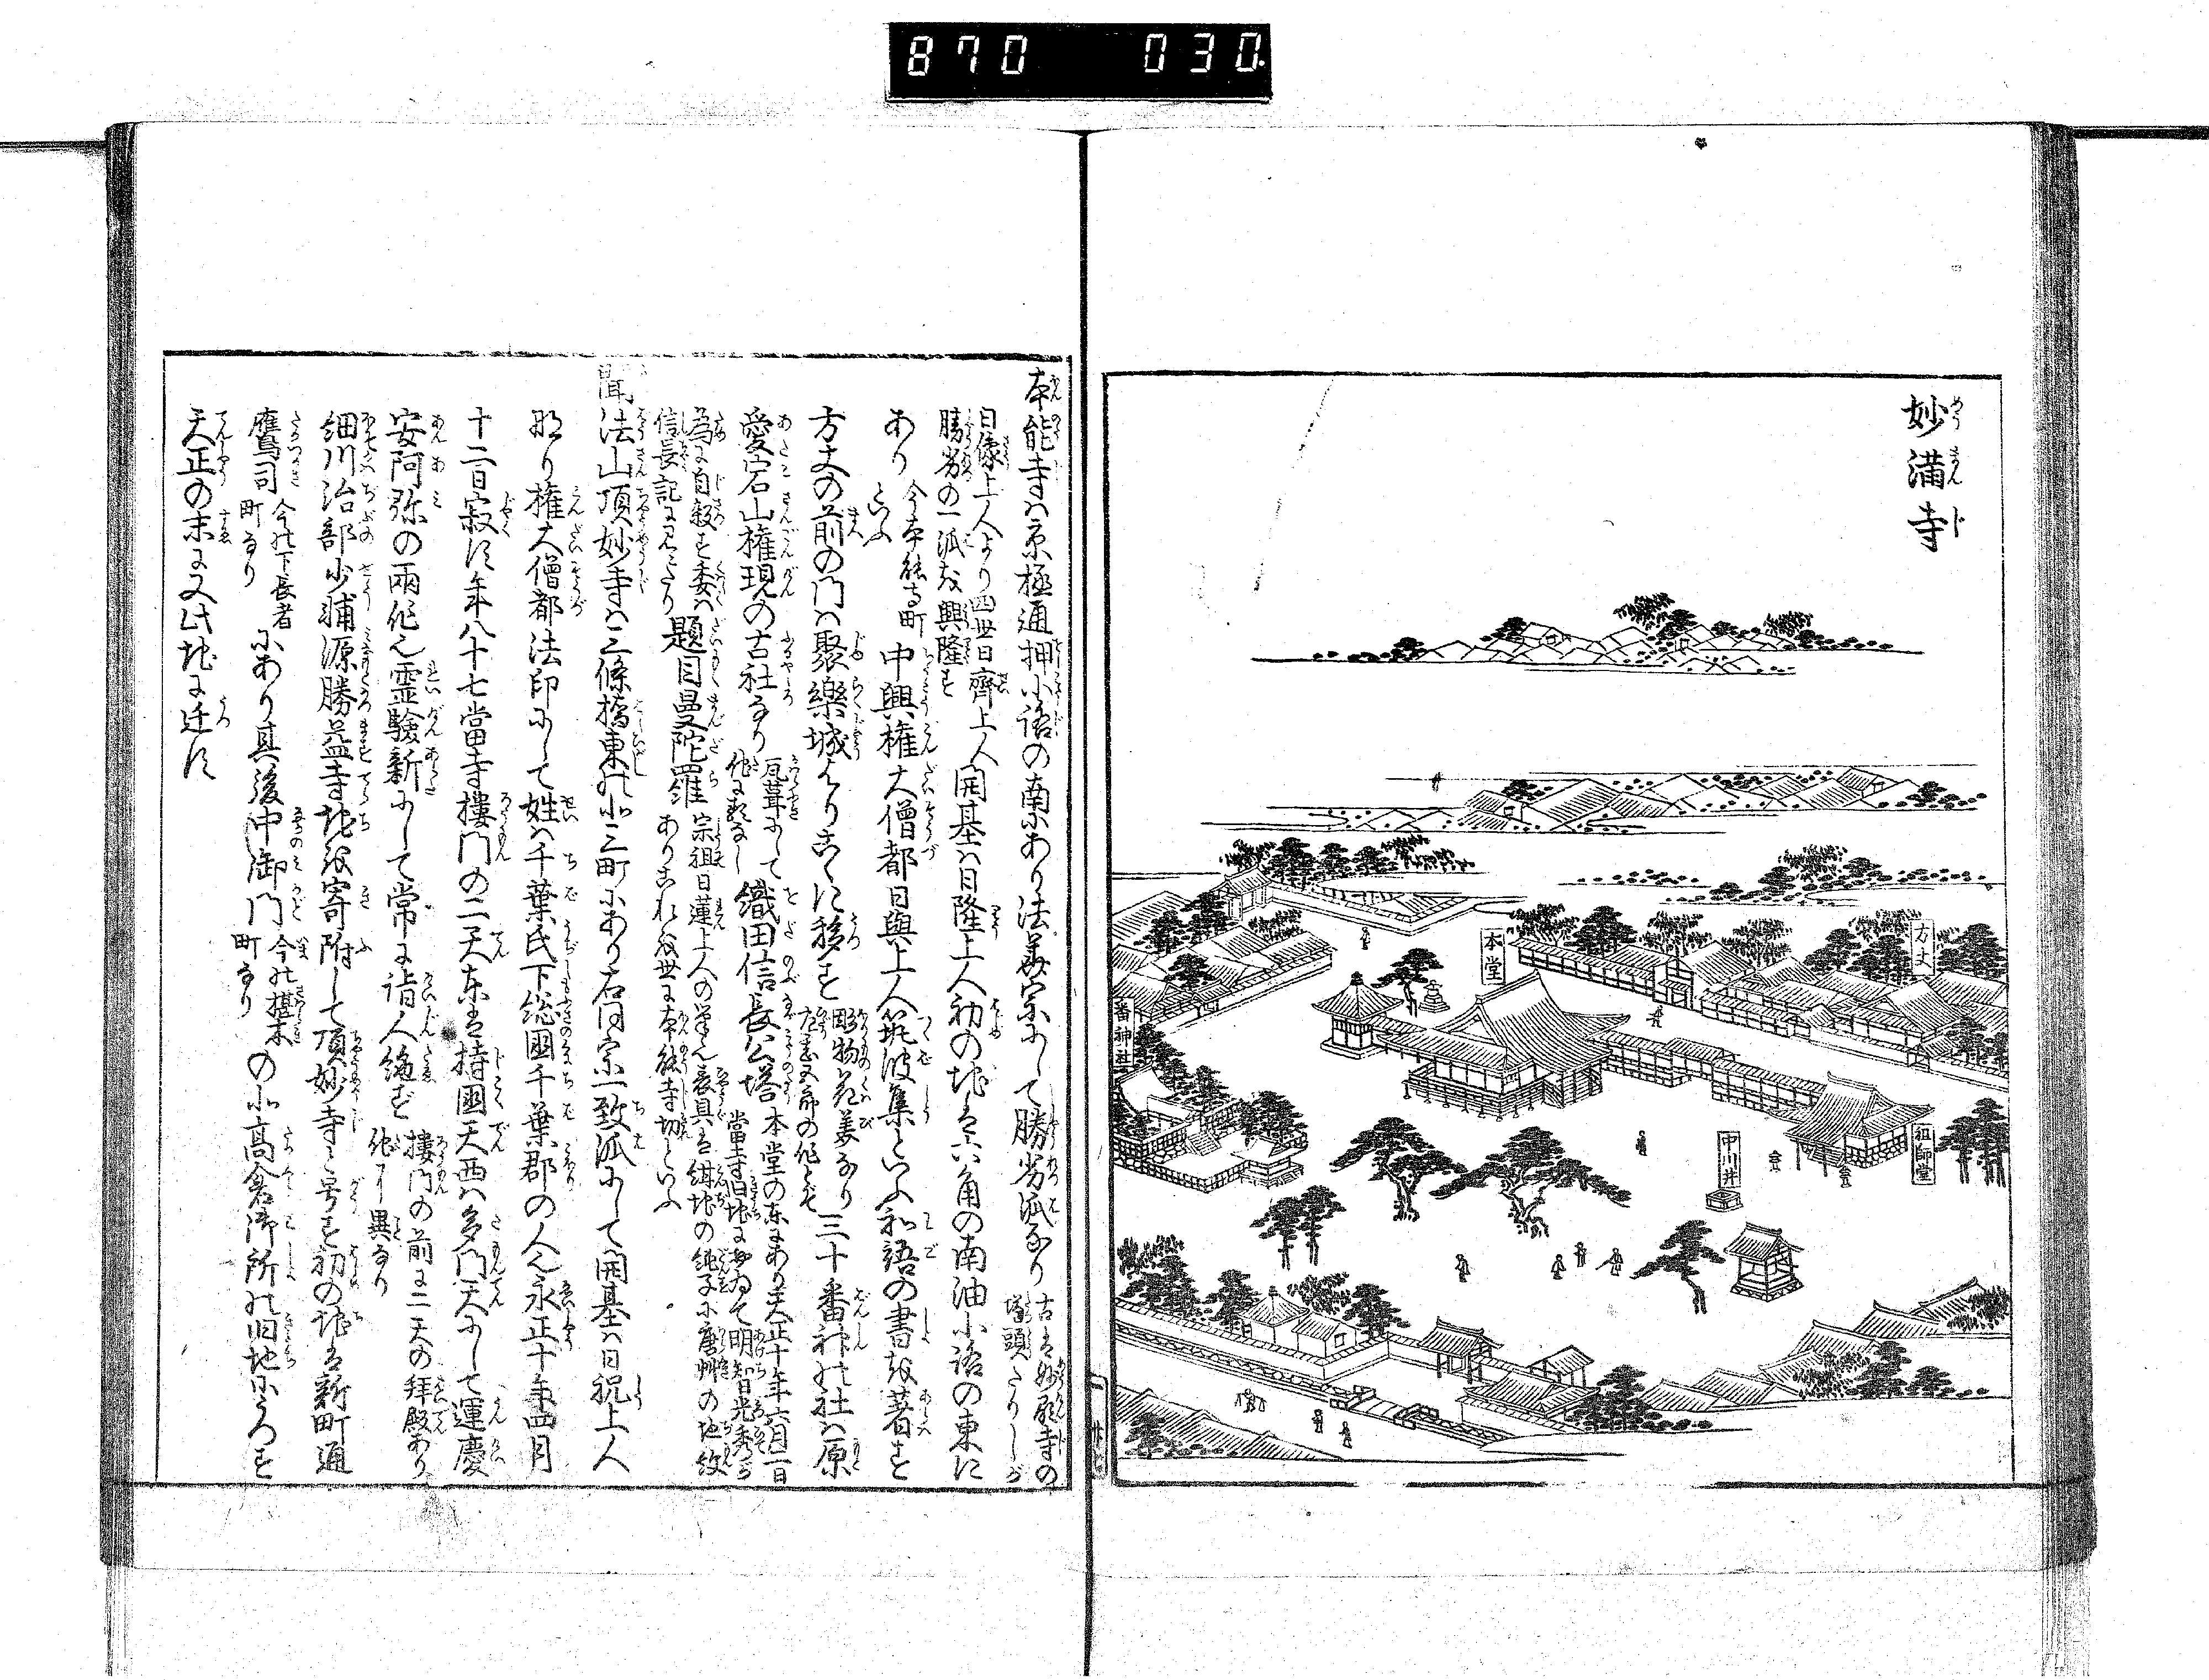 870 030
妙満寺
本堂
方丈
番神社
祖師堂
中川井
本能寺ハ京極通押小路の南にあり法華宗にして勝劣派なり
古は妙顕寺の
塔頭たりしが
日像上人より四世日齊上人
勝劣の一派を興隆す
開基ハ日隆上人初の地は六角の南油小路の東に
あり
今本能寺町
といふ
中興権大僧都日與上人筑波集といふ和語の書を著す
方丈の前の門ハ聚樂城よりこゝに移す
彫物花美なり
左甚五郎の作とぞ
三十番神の社ハ原
愛宕山権現の古社なり
瓦葺にして
作工奇なし
織田信長公塔
本堂の東にあり天正十年六月二日
當寺旧地に於ゐて明智日光秀が
為に自殺す委ハ
信長記に見えたり
題目曼陀羅
宗祖日蓮上人の筆也表具は紺地の純子に唐艸の地紋
ありこれを世に本能寺切といふ
聞法山頂妙寺ハ三條橋東の北二町にあり右同宗一致派にして開基ハ日祝上人
なり権大僧都法印にして姓ハ千葉氏下総國千葉郡の人也永正十年四月
十二日寂す年八十七當寺樓門の二天東は持國天西ハ多門天にして運慶
安阿弥の兩作也霊驗新にして常に詣人絶ず
樓門の前に二天の拝殿あり
他に異なり
細川治部少輔源勝益寺地を寄附して頂妙寺と号す初の地は新町通
鷹司
今の下長者
町なり
にあり其後中御門
今の椹木
町なり
の北高倉御所の旧地にうつす
天正の末に又此地に迁す